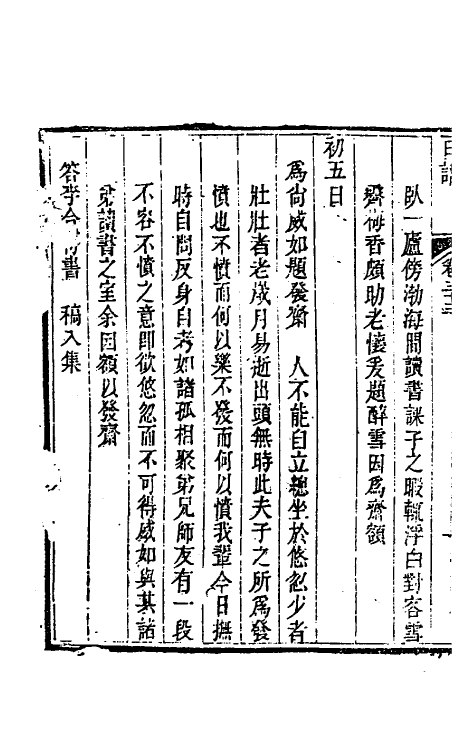 日譜
卷三十三
臥一廬傍渤海間讀書課子之暇輒浮白對客雪
霽梅香頗助老懷爰題醉雪因為齋額
初五日
為尚威如題發齋　人不能自立總坐於悠忽少者
壯壯者老歲月易逝出頭無時此夫子之所為發
憤也不憤而何以樂不發而何以憤我輩今日撫
時自問反身自考如諸孤相聚弟兄師友有一段
不容不憤之意即欲悠忽而不可得威如與其諸
兄讀書之室余因額以發齋
答李　書　稿入集